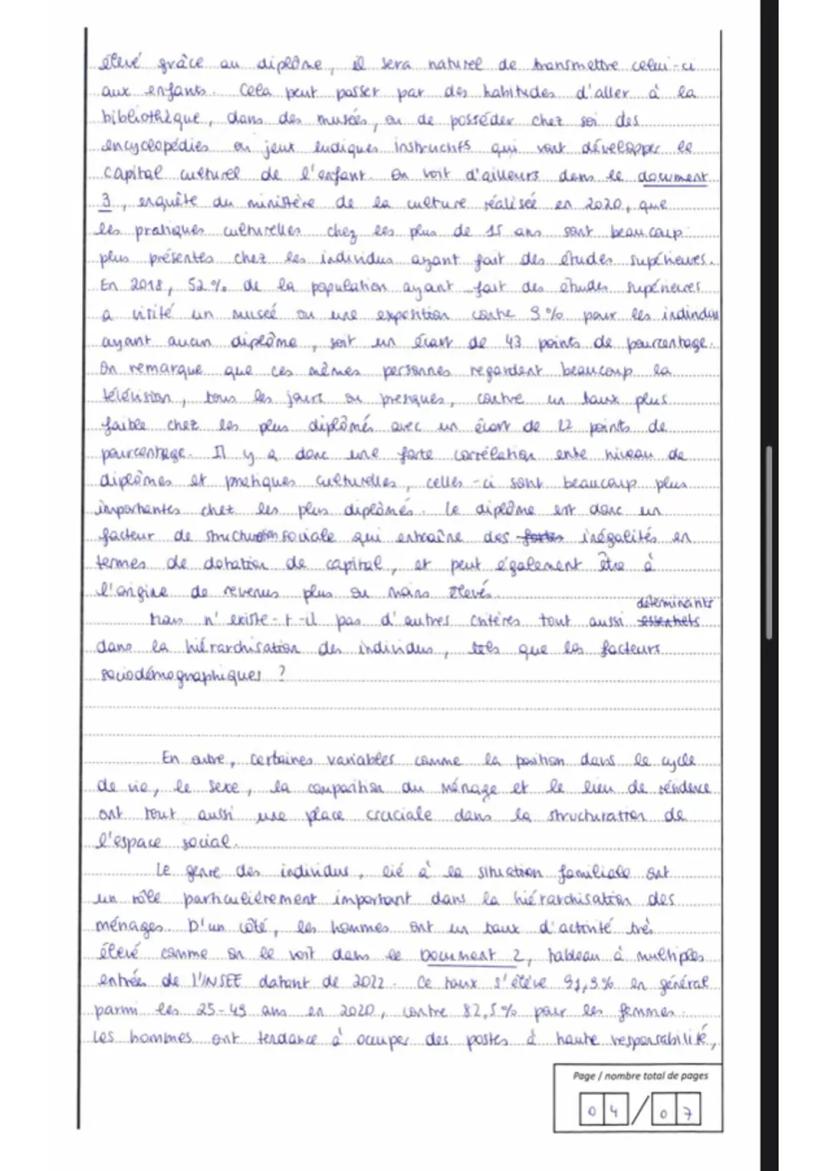 élevé grâce au diplôme, il sera naturel de transmettre celui-ci
aux enfants. Cela peut passer par des habitudes d'aller à la
bibliothèque, dans des musées, ou de posséder chez soi des
encyclopédies ou jeux ludiques instructifs qui vont développer le
capital culturel de l'enfant. On voit d'ailleurs dans le document
3, enquête du ministère de la culture réalisée en 2020, que
les pratiques culturelles chez les plus de 15 ans sont beaucoup
plus présentes chez les individus ayant fait des études supérieures.
En 2018, 52% de la population ayant fait des études supérieures
a visité un museé ou une exposition contre 9% pour les individus
ayant aucun diplôme, soit un écart de 43 points de pourcentage.
On remarque que ces mêmes personnes regardent beaucoup la
télévision, tous les jours ou presques, contre un taux plus
faible chez les plus diplômés avec un écart de 12 points de
pourcentage. Il y a donc une forte corrélation entre niveau de
diplômes et pratiques culturelles, celles-ci sont beaucoup plus
importantes chez les plus diplômés. Le diplôme est donc un
facteur de structuration sociale qui entraîne des fortes inégalités en
termes de dotation de capital, et peut également être à
l'origine de revenus plus ou moins élevés.
déterminants
Mais n'existe-t-il pas d'autres critères tout aussi essentiels
dans la hiérarchisation des individus, tels que les facteurs
sociodémographiques ?
En outre, certaines variables comme la position dans le cycle
de vie, le sexe, la composition du ménage et le lieu de résidence
ont tout aussi une place cruciale dans la structuration de
l'espace social.
Le genre des individus, lié à la situation familiale ont
un rôle particulièrement important dans la hiérarchisation des
ménages. D'un côté, les hommes ont un taux d'activité très
élevé comme on le voit dans le Document 2, tableau à multiples
entrées de l'INSEE datant de 2022. Ce taux s'élève 91,9% en général
parmi les 25-49 ans en 2020, contre 82,5% pour les femmes.
Les hommes ont tendance à occuper des postes à haute responsabilité,
Page / nombre total de pages
04/07